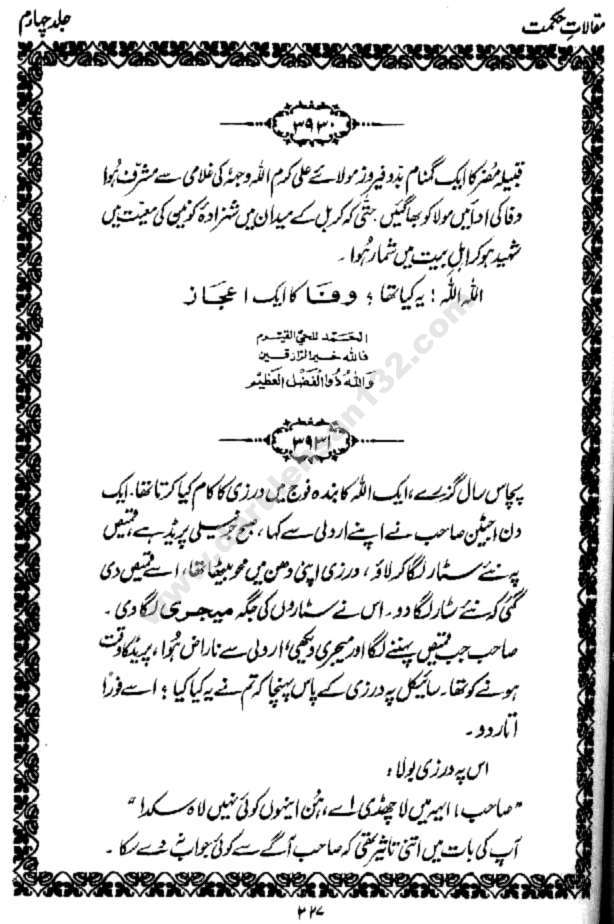 مقالاتِ حکمت
جلد چہارم
۳۹۳۰
قبیلہ مُضر کا ایک گمنام بدّو فیروز مولائے علی کرم اللہ وجہہٗ کی غلامی سے مشرف ہُوا
وفا کی ادائیں مولا کو بھا گئیں حتّٰی کہ کربل کے میدان میں شہزادۂ کونین کی معیّت میں
شہید ہو کر اہلِ بیت میں شمار ہُوا ۔
اللہ اللہ! یہ کیا تھا ؛ وفا کا ایک اعجاز
الحمد للحی القیوم
فاللہ خیر الرازقین
واللہ ذوالفضل العظیم
۳۹۳۱
پچاس سال گزرے، ایک اللہ کا بندہ فوج میں درزی کا کام کیا کرتا تھا۔ ایک
دن صاحب نے اپنے اردلی سے کہا، صبح جرنیلی پریڈ ہے، قمیص
پہ نئے سٹار لگا کر لاؤ، درزی اپنی دھن میں محو بیٹھا تھا، اسے قمیص دی
گئی کہ نئے سٹار لگا دو۔ اس نے ستاروں کی جگہ میجری لگا دی ۔
صاحب جب قمیص پہننے لگا اور میجری دیکھی، اردلی سے ناراض ہُوا، پریڈ کا وقت
ہونے کو تھا۔ سائیکل پہ درزی کے پاس پہنچا کہ تم نے یہ کیا کیا ؛ اسے فورًا
اتار دو ۔
اس پہ درزی بولا :
"صاحب، ایہہ میں لا چھڈی اے، ہُن اینہوں کوئی نہیں لاہ سکدا"
آپ کی بات میں اتنی تاثیر تھی کہ صاحب آگے سے کوئی جواب نہ دے سکا ۔
۲۲۷
www.darulehsan132.com